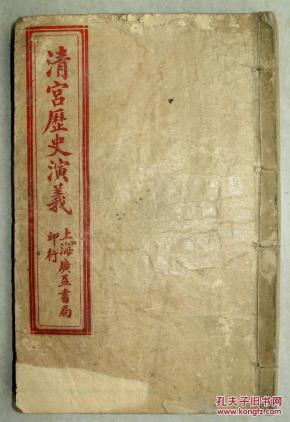 清宮歷史演義
上海廣益書局
印行
孔夫子旧书网